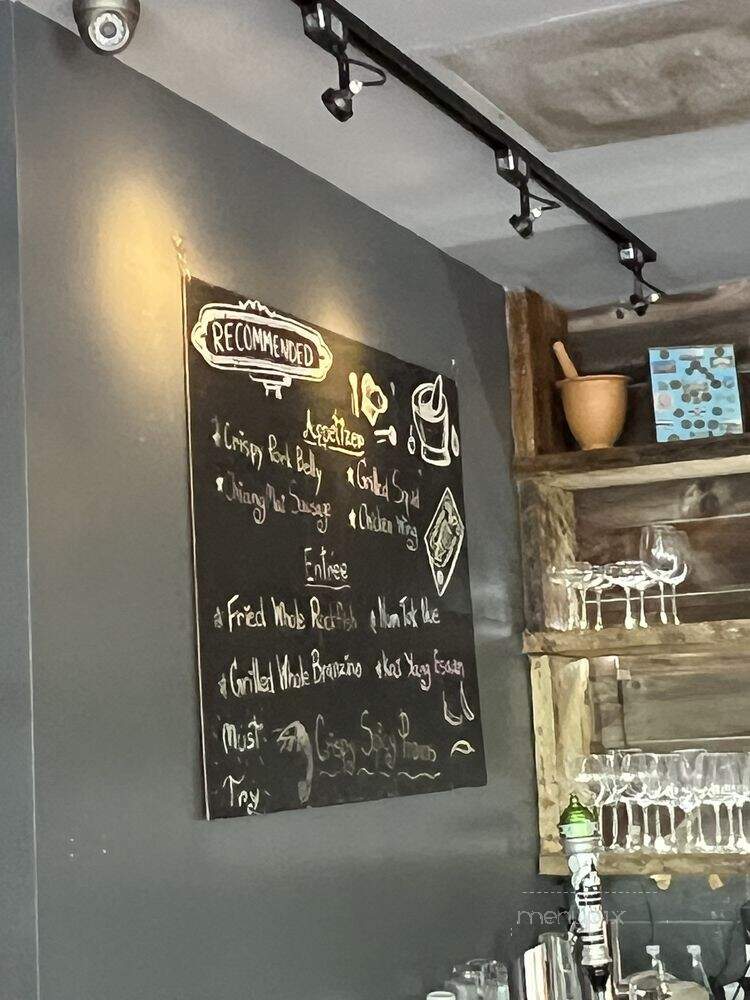 RECOMMENDED
Appetizer
Crispy Pork Belly
Grilled Squid
Jhiang Mai Sausage
Chicken Wing
Entrée
Fried Whole Rockfish
Num Tok Nue
Grilled Whole Branzino
Kai Yang Esaan
Must Try
Crispy Spicy Prawn
menupix